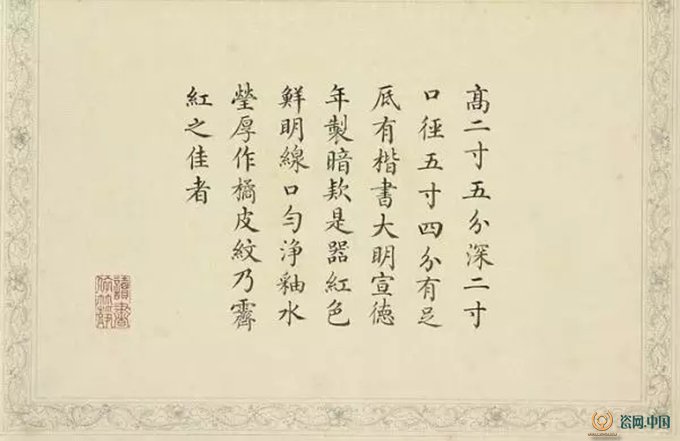 髙二寸五分深二寸
口徑五寸四分有足
底有楷書大明宣德
年製暗欵是器紅色
鮮明線口勻淨釉水
瑩厚作橘皮紋乃霽
紅之佳者
瓷网.中国